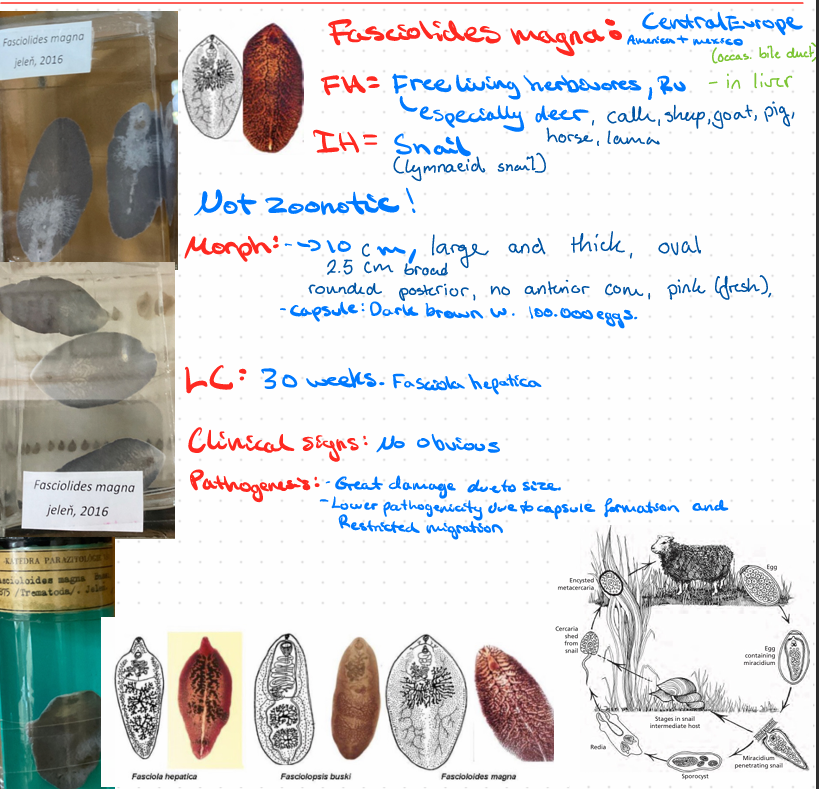 Fasciolides magna
jeleň, 2016
Fasciolides magna: Central Europe
America + mexico
(occas. bile duct)
FH = Free living herbovores, Ru - in liver
especially deer, cattle, sheep, goat, pig,
horse, lama
IH = Snail
(lymnaeid snail)
Not zoonotic!
Morph: --> 10 cm, large and thick, oval
2.5 cm broad
rounded posterior, no anterior cone, pink (fresh),
- capsule: Dark brown w. 100.000 eggs.
LC: 30 weeks. Fasciola hepatica
Clinical signs: No obvious
Pathogenesis: - Great damage due to size
- Lower pathogenicity due to capsule formation and
Restricted migration
Fasciolides magna
jeleň, 2016
-KATEDRA PARAZITOLÓGIE
ascioloides magna
875 /Trematoda/. Jeleň
Encysted
metacercaria
Egg
Cercaria
shed
from
snail
Egg
containing
miracidium
Stages in snail
intermediate host
Redia
Miracidium
penetrating snail
Sporocyst
Fasciola hepatica
Fasciolopsis buski
Fascioloides magna